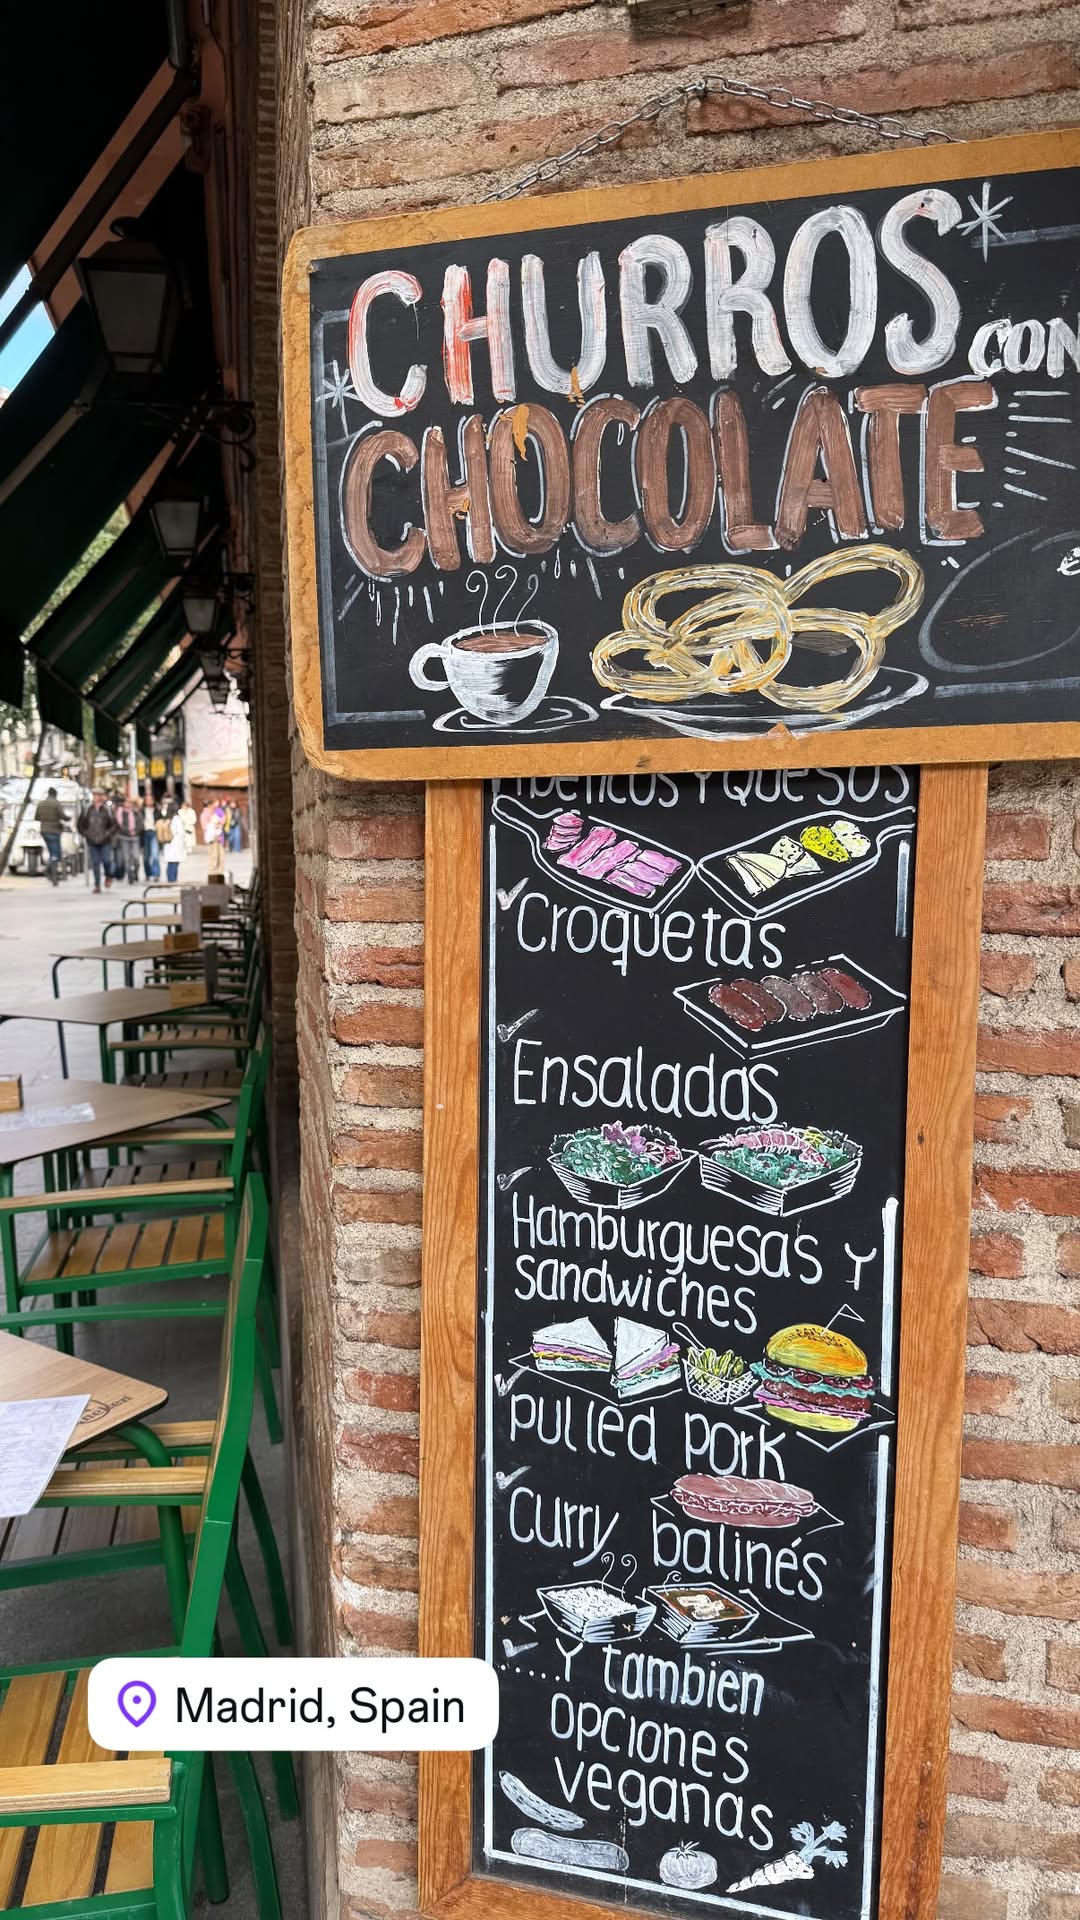 CHURROS CON
CHOCOLATE
ibéricos Y QUESOS
Croquetas
Ensaladas
Hamburguesas Y
sandwiches
pulled pork
curry balinés
.....Y tambien
opciones
veganas
Madrid, Spain